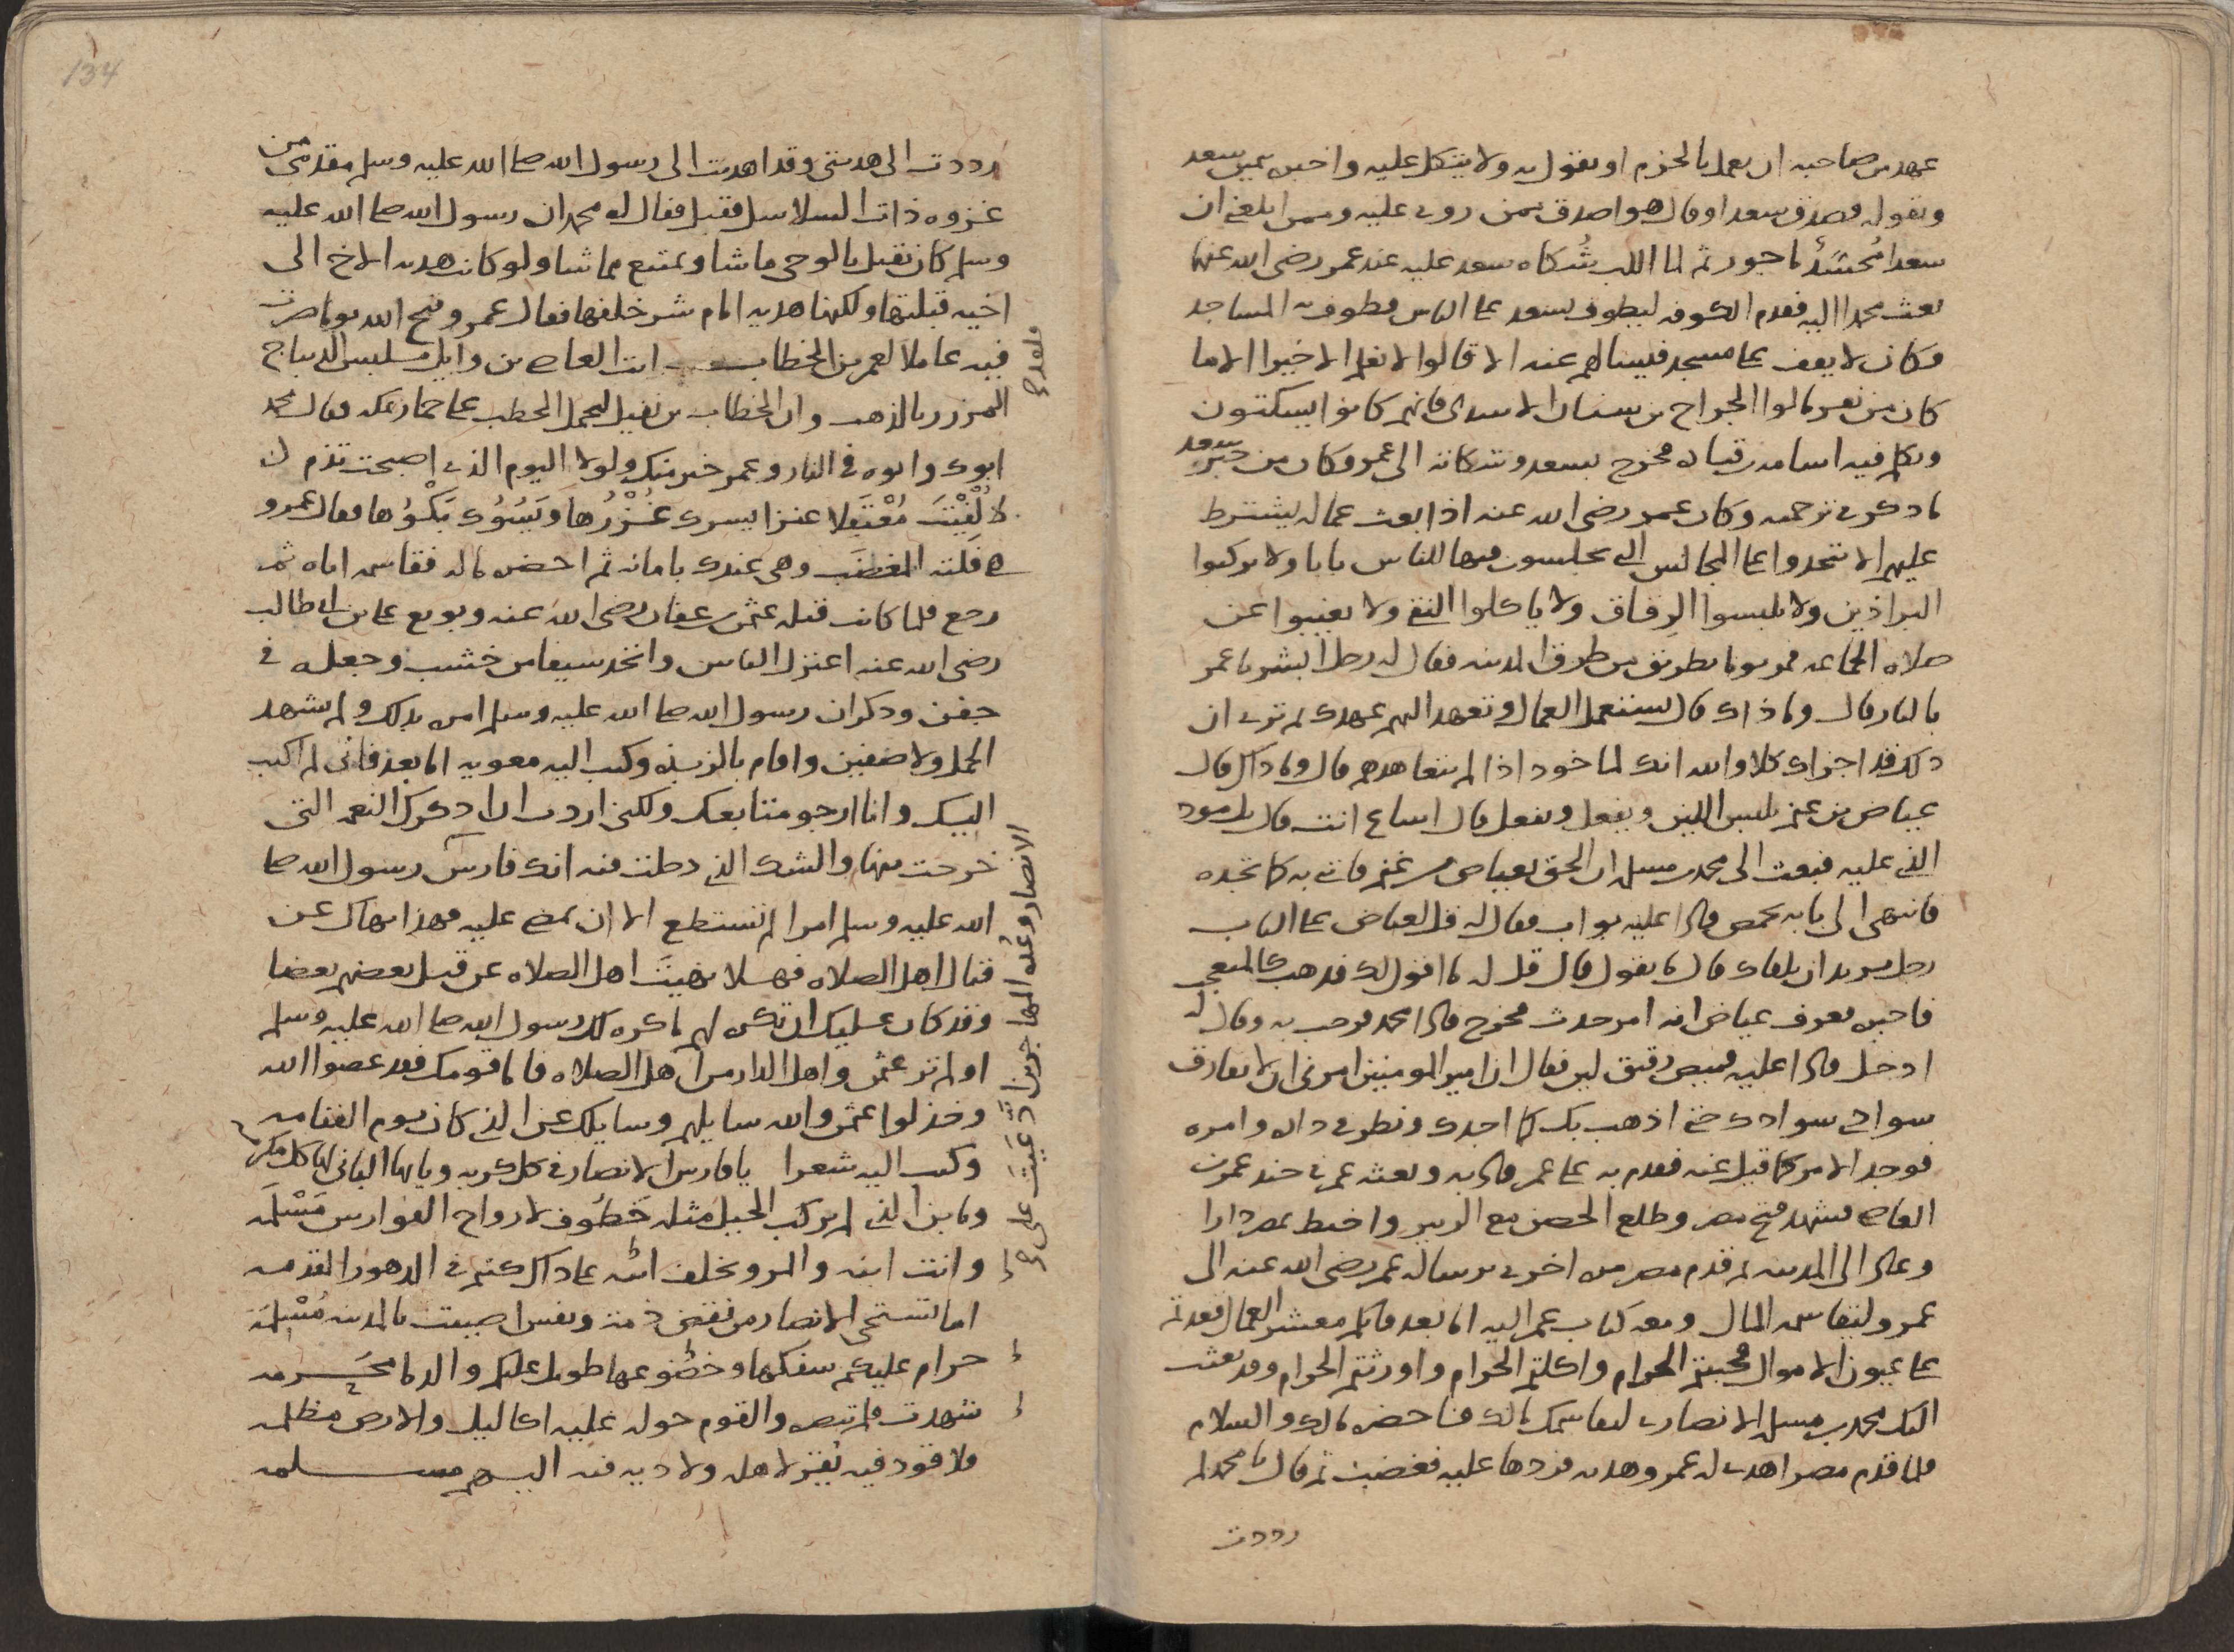 عهد من صاحبه ان يعمل بالحزم او يقول به ولا يتكل عليه واخبره بمن سعد
وبقوله فصدق سعدا وقال هو اصدق ممن روى عليه وممن ابلغى ان
سعدا ثم لما شكاه سعد عليه عند عمر رضى الله عنها
بعث محمدا اليه فقدم الكوفه ليطوف بسعد على الناس فطوف به المساجد
فكان لا يقف على مسجد فيسالهم عنه الا قالوا لا نعلم الا خيرا الا ما
كان من نفر مالوا الجراح بن سنان الاسدى فانهم كانوا يسكتون
وتكلم فيه اسامه بن قتاده فخرج بسعد وشكاته الى عمر وكان من خبر سعد
ما ذكر فى ترجمته وكان عمر رضى الله عنه اذا بعث عماله يشترط
عليهم الا تتخذوا على المجالس التى تجلسون فيها للناس بابا ولا تركبوا
البراذين ولا تلبسوا الرقاق ولا ياكلوا النقى ولا يغيبوا عن
صلاه الجماعه فمر يوما بطريق من طرق المدينه فقال له رجل ابشر يا عمر
بالنار قال وما ذاك قال تستعمل العمال وتعهد اليهم عهدك ثم ترى ان
ذلك قد اجزاك كلا والله انك لماخوذ اذا لم تتعاهدهم قال وما ذاك قال
عياض بن غنم يلبس اللين ويفعل ويفعل قال اساع انت قال بل مود
الذى عليه فبعث الى محمد بن مسلمه ان الحق بعياض بن غنم فاتنى به كما تجده
فانتهى الى بابه بحمص فاذا عليه بواب فقال له قل لعياض على الباب
رجل يريد ان يلقاك قال ما تقول قال قل له ما اقول لك فذهب كالمتعجب
فاخبره فعرف عياض انه امر حدث فخرج فاذا محمد فرحب به وقال له
ادخل فاذا عليه قميص رقيق لين فقال ان امير المومنين امرنى ان لا يفارق
سوادى سوادك حتى اذهب بك كما اجدك ونظر فى داره وامره
فوجد الامر كما قيل عنه فقدم به على عمر فاذا به وبعثه عمر فى جند عمرو بن
العاص فشهد فتح مصر وطلع الحصن مع الزبير واختط بمصر دارا
وعاد الى المدينه ثم قدم مصر مره اخرى برساله عمر رضى الله عنه الى
عمرو ليقاسمه المال ومعه كتاب عمر اليه اما بعد فانكم معشر العمال قعدتم
على عيون الاموال فجبيتم الحرام واكلتم الحرام واورثتم الحرام وقد بعثت
اليك محمد بن مسلمه الانصارى ليقاسمك مالك فاحضره مالك والسلام
فلما قدم مصر اهدى له عمرو هديه فردها عليه فغضب ثم قال يا محمد لم
رددت
134
رددت الى هديتى وقد اهديت الى رسول الله صلى الله عليه وسلم مقدمى من
غزوه ذات السلاسل فقبل فقال له محمد ان رسول الله صلى الله عليه
وسلم كان يقبل بالوحى ما شا ويمتنع مما شا ولو كانت هديه الاخ الى
اخيه قبلتها ولكنها هديه امام شر خلفها فقال عمرو قبح الله يوما صرت
فيه عاملا لعمر بن الخطاب انت العاص بن وايل يلبس الديباج
المزرر بالذهب وان الخطاب بن نفيل ليحمل الحطب على حمار بمكه فقال محمد
ابوك وابوه فى النار وعمر خير منك ولولا اليوم الذى اصبحت تذم
لالفيت معتقلا عنزا يسرك غزرها ويسوك بكوها فقال عمرو
هى فلته المغضب وهى عندك بامانه ثم احضره ماله فقاسمه اياه ثم
رجع فلما كانت قتله عثمن بن عفان رضى الله عنه وبويع على بن ابى طالب
رضى الله عنه اعتزل الناس واتخذ سيفا من خشب وجعله فى
جفن وذكر ان رسول الله صلى الله عليه وسلم امره بذلك ولم يشهد
الجمل ولا صفين واقام بالربذه وكتب اليه معويه اما بعد فانى لم اكتب
اليك وانا ارجو متابعتك ولكنى اردت ان اذكرك النعمه التى
خرجت منها والشك الذى دخلت فيه انك فارس رسول الله صلى
الله عليه وسلم امرا لم تستطع الا ان تمضى عليه فهذا نهاك عن
قتال اهل الصلاه فهلا نهيت اهل الصلاه عن قتل بعضهم بعضا
وقد كان عليك ان تكره لهم ما كره لك رسول الله صلى الله عليه وسلم
او لم تر عثمن واهل الدار من اهل الصلاه فاما قومك فقد عصوا الله
وخذلوا عثمن والله سايلهم وسايلك عن الذى كان يوم القيامه
وكتب اليه شعرا يا فارس الانصار فى كل كريه ويا ايها البانى لها كل مكرمه
وما بن الذى لم يركب الخيل مثله خطوف لارواح الفوارس مسلمه
وانت ابنه والمرو يخلف ابنه على ذاك كنتم فى الدهور القدمه
اما تستحى الانصار من نقض ذمه ونفس اصيبت بالمدينه مسلمه
حرام عليكم سفكها وخضوعها طويل عليكم والدما محرمه
شهدت فلم تنصر والقوم حوله عليه اكاليل والارض مظلمه
فلا قود فيه يقر لاهله ولا ديه فيه اليهم مسلمه
فلعدع
الانصار وعده المهاجرين ادعيت على